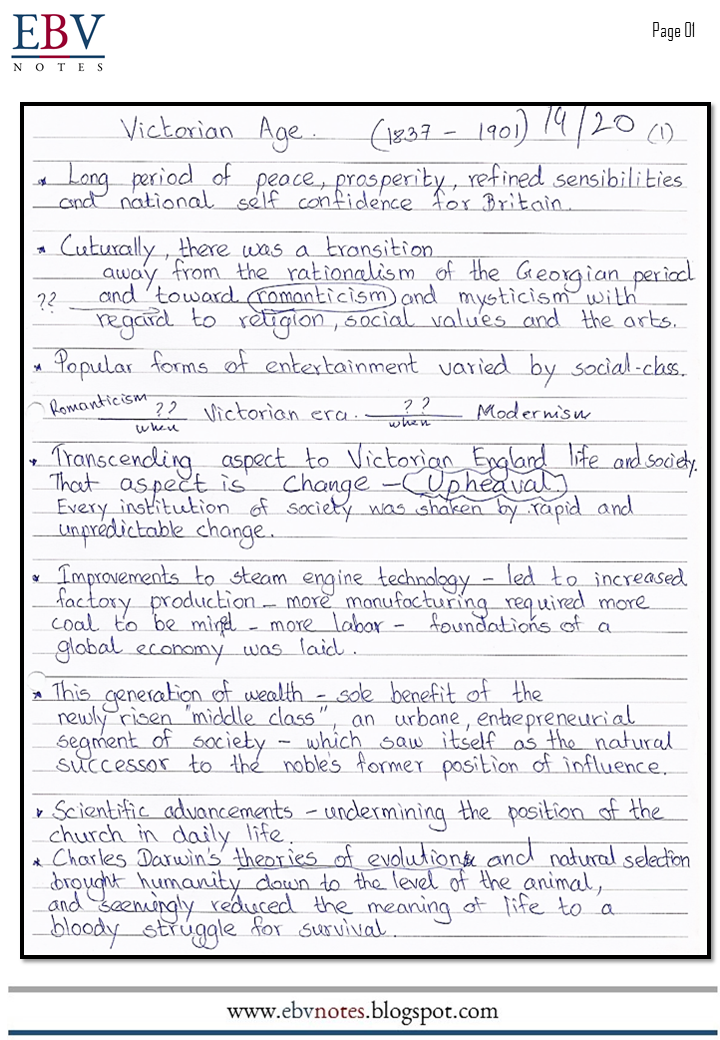 EBV
NOTES
Page 01
Victorian Age. (1837 - 1901) 19/20 (1)
* Long period of peace, prosperity, refined sensibilities
and national self confidence for Britain.
* Cuturally, there was a transition
away from the rationalism of the Georgian period
?? and toward romanticism and mysticism with
regard to religion, social values and the arts.
* Popular forms of entertainment varied by social-class.
Romanticism ?? when Victorian era. ?? when Modernism
* Transcending aspect to Victorian England life and society.
That aspect is change - Upheaval.
Every institution of society was shaken by rapid and
unpredictable change.
* Improvements to steam engine technology - led to increased
factory production - more manufacturing required more
coal to be mined - more labor - foundations of a
global economy was laid.
* This generation of wealth - sole benefit of the
newly risen "middle class", an urbane, entrepreneurial
segment of society - which saw itself as the natural
successor to the noble's former position of influence.
* Scientific advancements - undermining the position of the
church in daily life.
* Charles Darwin's theories of evolution and natural selection
brought humanity down to the level of the animal,
and seemingly reduced the meaning of life to a
bloody struggle for survival.
www.ebvnotes.blogspot.com